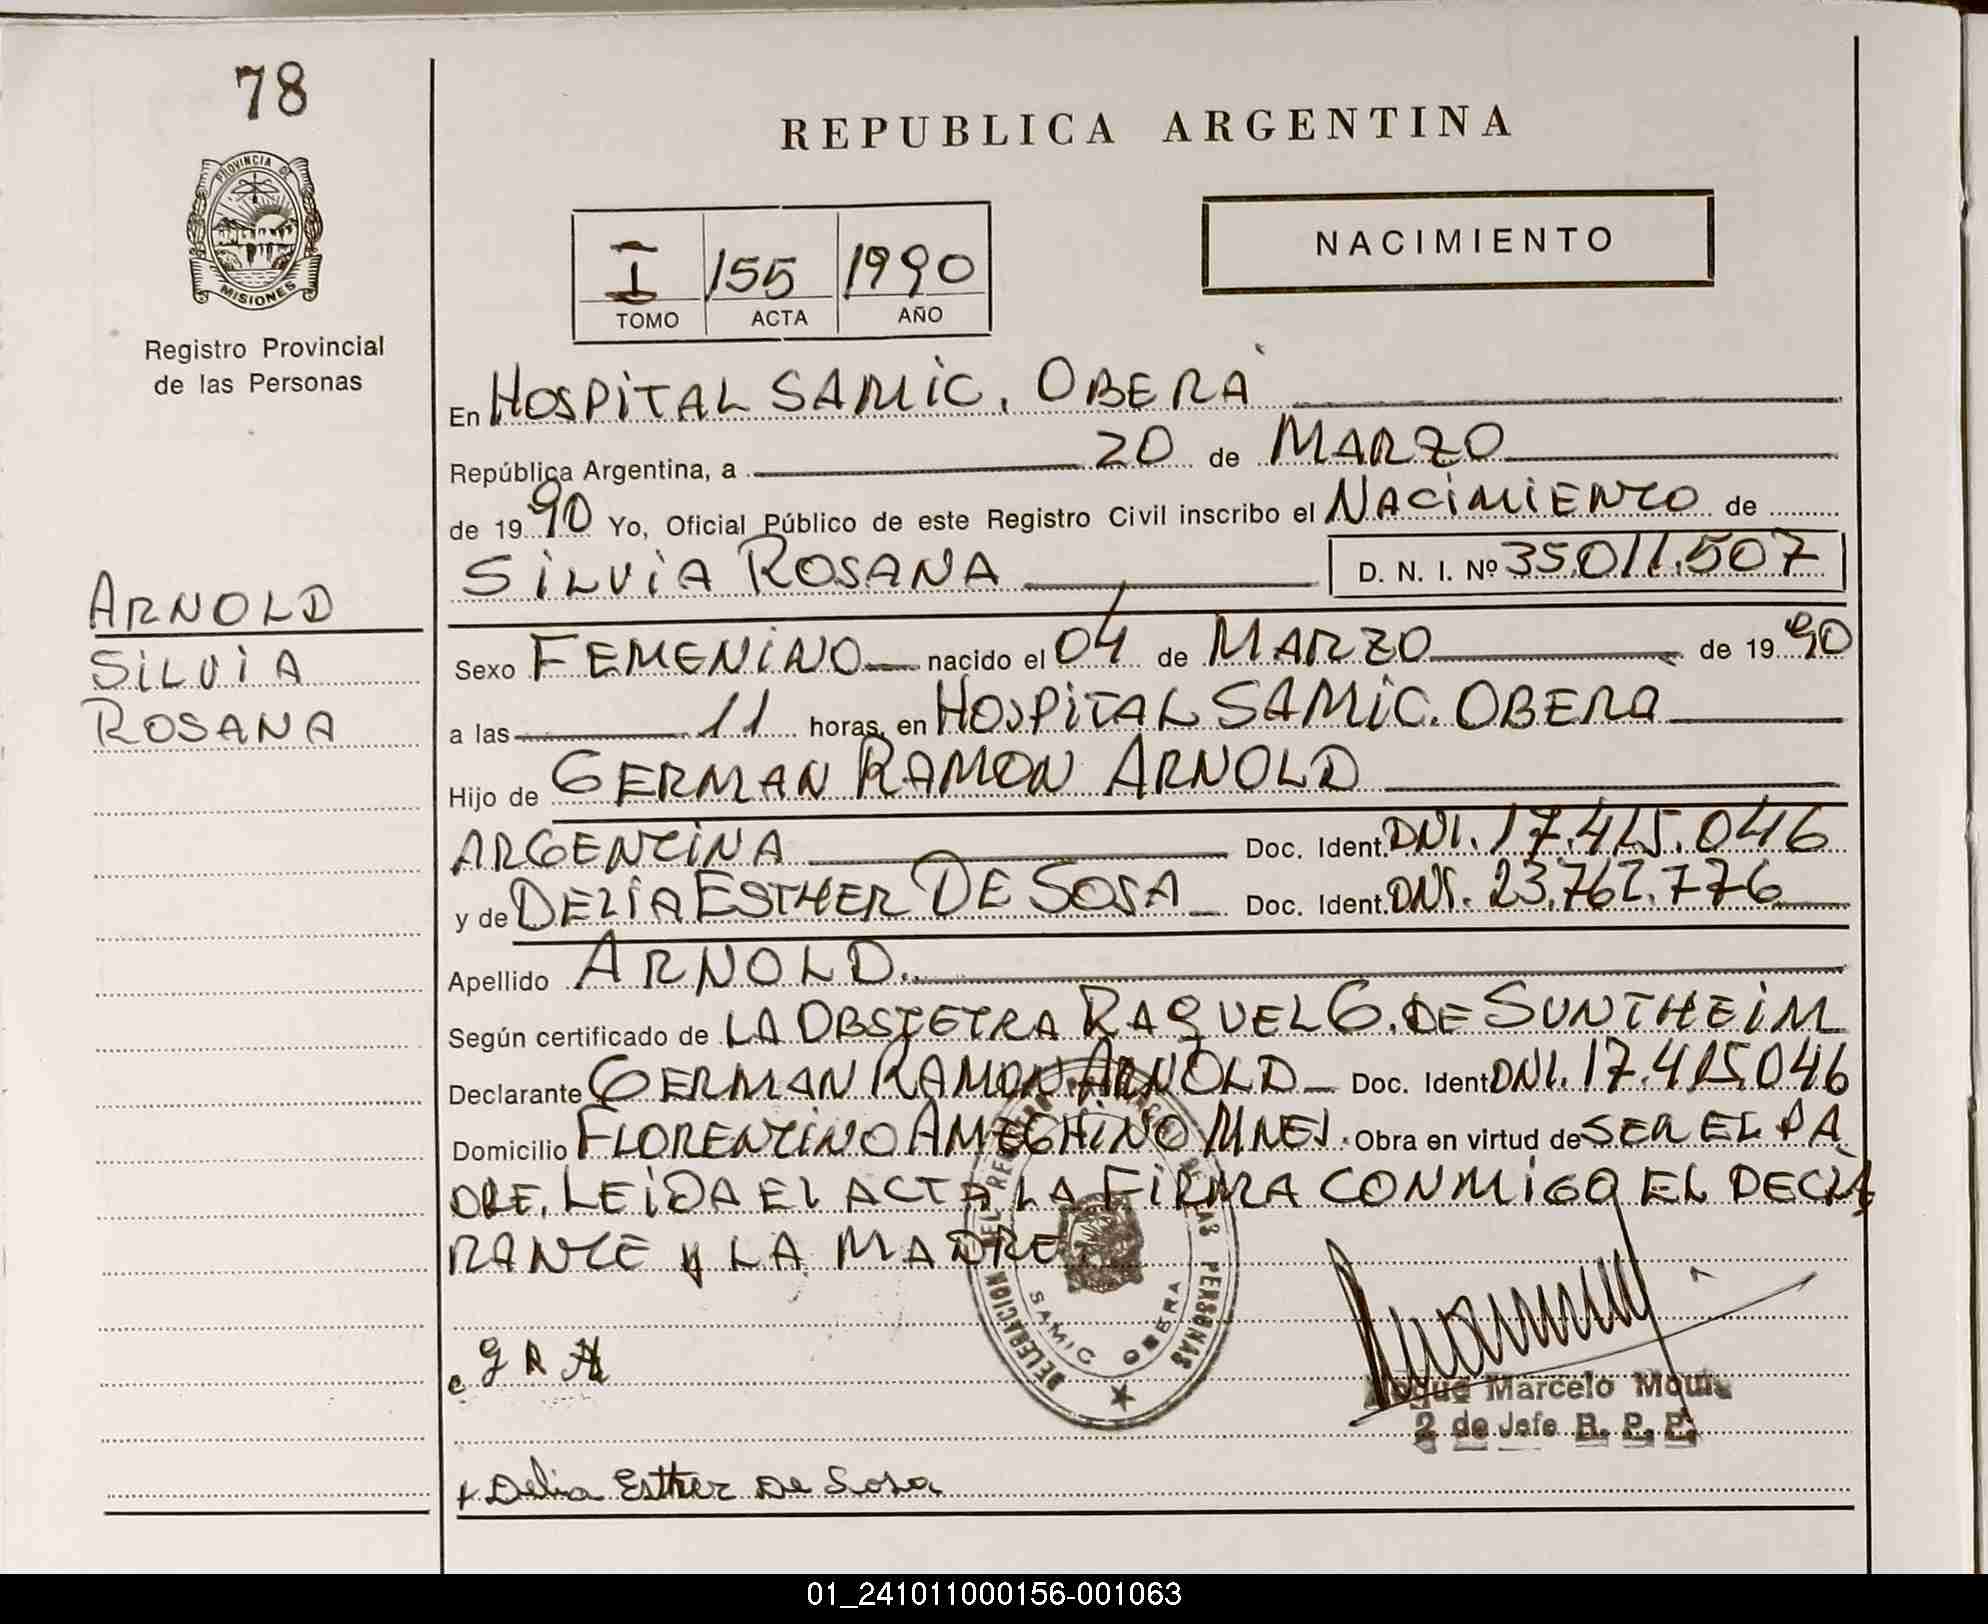 78
REPUBLICA ARGENTINA
PROVINCIA DE
MISIONES
Registro Provincial
de las Personas
I 155 1990
TOMO ACTA AÑO
NACIMIENTO
En HOSPITAL SAMIC. OBERA
República Argentina, a 20 de MARZO
de 1990 Yo, Oficial Público de este Registro Civil inscribo el NACIMIENTO de
SILVIA ROSANA D. N. I. Nº 35.011.507
ARNOLD
SILVIA
ROSANA
Sexo FEMENINO nacido el 04 de MARZO de 1990
a las 11 horas, en HOSPITAL SAMIC. OBERA
Hijo de GERMAN RAMON ARNOLD
ARGENTINA Doc. Ident. DNI. 17.415.046
y de DELIA ESTHER DE SOSA Doc. Ident. DNI. 23.762.776
Apellido ARNOLD.
Según certificado de LA OBSTETRA RAQUEL G. DE SUNTHEIM
Declarante GERMAN RAMON ARNOLD Doc. Ident DNI. 17.415.046
Domicilio FLORENTINO AMEGHINO MNES. Obra en virtud de SER EL PA
DRE. LEIDA EL ACTA LA FIRMA CONMIGO EL DECLA
RANTE y LA MADRE.
DELEGACION DEL REGISTRO DE LAS PERSONAS
SAMIC OBERA
G R A
Marcelo
2 de Jefe R. P. P.
Delia Esther De Sosa
01_241011000156-001063